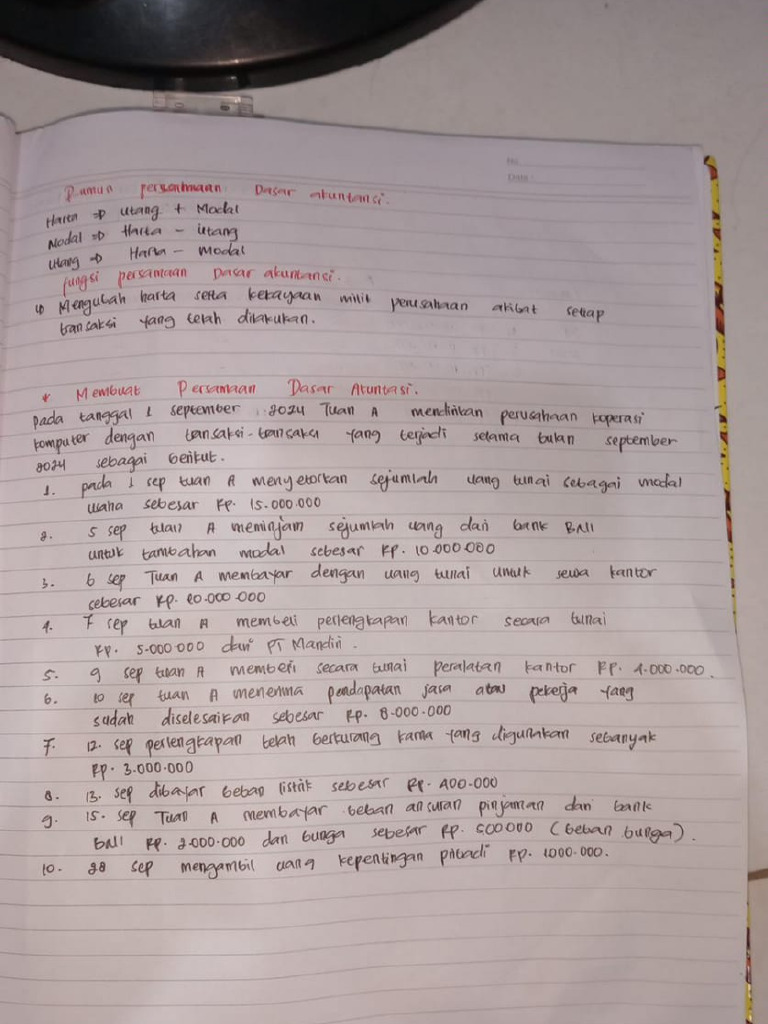 No.
Date:
Rumus persamaan Dasar akuntansi.
Harta => utang + Modal
Modal => Harta - utang
utang => Harta - modal
fungsi persamaan Dasar akuntansi.
Mengubah harta serta kekayaan milik perusahaan akibat setiap
transaksi yang telah dilakukan.
* Membuat Persamaan Dasar Akuntasi.
Pada tanggal 1 september 2024 Tuan A mendirikan perusahaan koperasi
komputer dengan transaksi-transaksi yang terjadi selama bulan september
2024 sebagai berikut.
1. pada 1 sep tuan A menyetorkan sejumlah uang tunai sebagai modal
usaha sebesar Rp. 15.000.000
2. 5 sep tuan A meminjam sejumlah uang dari bank BNI
untuk tambahan modal sebesar Rp. 10.000.000
3. 6 sep Tuan A membayar dengan uang tunai untuk sewa kantor
sebesar Rp. 20.000.000
4. 7 sep tuan A membeli perlengkapan kantor secara tunai
Rp. 5.000.000 dari PT Mandiri.
5. 9 sep tuan A membeli secara tunai peralatan kantor Rp. 4.000.000.
6. 10 sep tuan A menerima pendapatan jasa atau pekerja yang
sudah diselesaikan sebesar Rp. 8.000.000
7. 12. sep perlengkapan telah berkurang karna yang digunakan sebanyak
Rp. 3.000.000
8. 13. sep dibayar beban listrik sebesar Rp. 400.000
9. 15. sep Tuan A membayar beban ansuran pinjaman dari bank
BNI Rp. 2.000.000 dan bunga sebesar Rp. 500000 (beban bunga).
10. 28 sep mengambil uang kepentingan pribadi Rp. 1000.000.